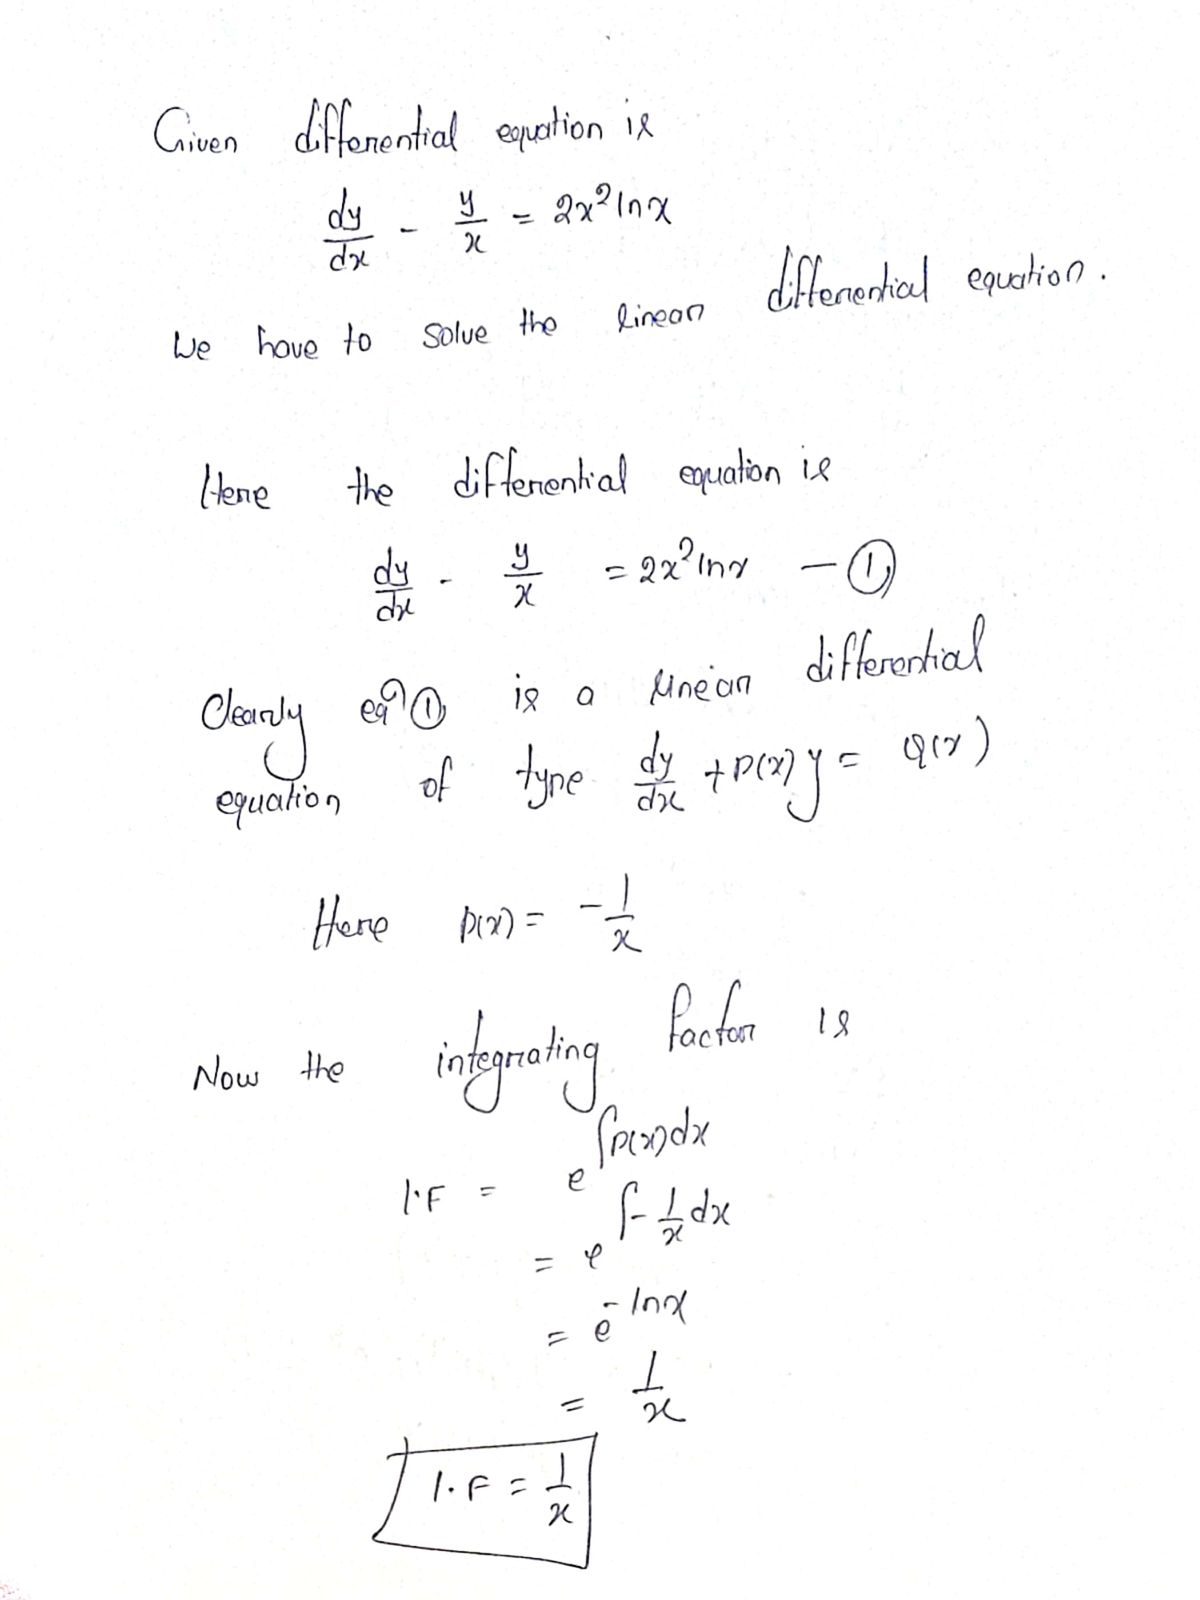 Given differential equation is
dy/dx - y/x = 2x² ln x
We have to solve the linear differential equation.
Here the differential equation is
dy/dx - y/x = 2x² ln x — ①
Clearly eqⁿ ① is a linear differential
equation of type dy/dx + P(x) y = Q(x)
Here P(x) = - 1/x
Now the integrating factor is
I.F = e^∫P(x)dx
= e^∫- 1/x dx
= e^- ln x
= 1/x
I.F = 1/x